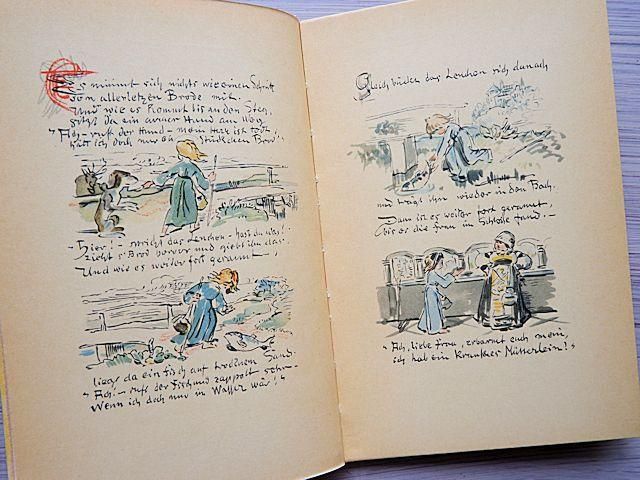 Es nimmt sich nichts wie einen Schnitt
vom allerletzen Brode mit.
Und wie es kommt bis an den Steg,
sitzt da ein armer Hund am Weg.
"Ach - ruft der Hund - mein Herz ist todt,
hätt ich doch nur ein Stückchen Brod!"
"Hier! - spricht das Lenchen - hast du was!"
zieht s'Brod hervor und giebt ihm das.
Und wie es weiter fort gerannt,
liegt da ein Fisch auf trocknem Sand.
"Ach! - ruft der Fisch und zappelt sehr -
Wenn ich doch nur im Wasser wär!"
Gleich bückt das Lenchen sich danach
und trägt ihn wieder in den Bach.
Dann ist es weiter fort gerannt,
bis es die Frau im Schlosse fand.
"Ach, liebe Frau, erbarmt euch mein,
ich hab ein krankes Mütterlein!"